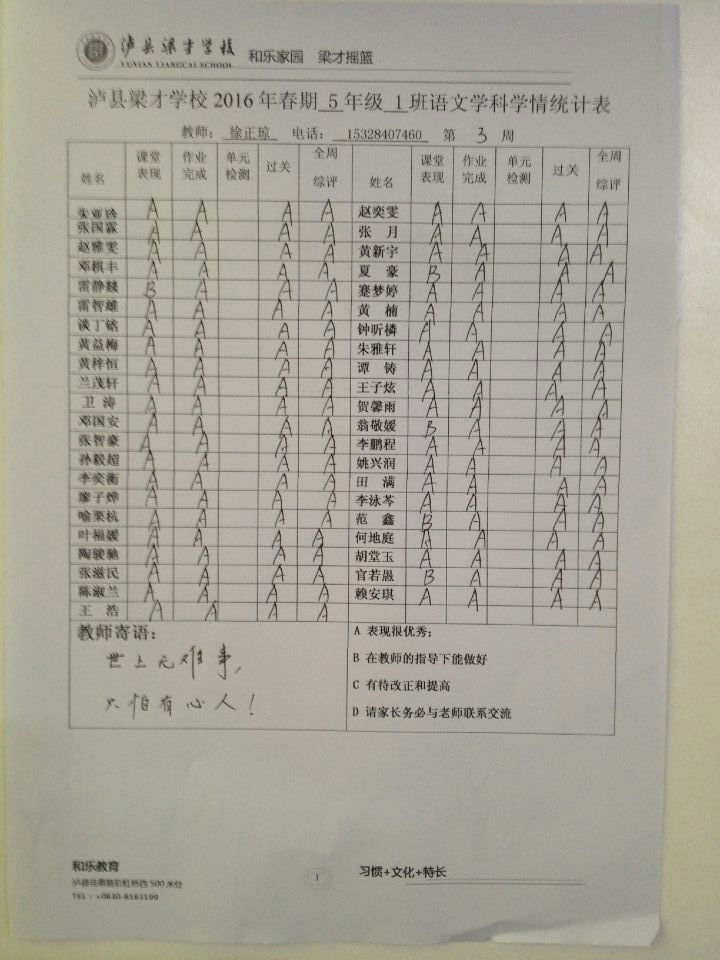 泸县梁才学校 和乐家园 梁才摇篮
LUXIAN LIANGCAI SCHOOL
泸县梁才学校2016年春期 5 年级 1 班语文学科学情统计表
教师： 徐正琼 电话： 15328407460 第 3 周
姓名 课堂表现 作业完成 单元检测 过关 全周综评 姓名 课堂表现 作业完成 单元检测 过关 全周综评
朱亚玲 A A A A 赵奕雯 A A A A
张国霖 A A A A 张月 A A A A
赵雅雯 A A A A 黄新宇 A A A A
邓棋丰 A A A A 夏豪 B A A A
雷静燚 B A A A 蹇梦婷 A A A A
雷智雄 A A A A 黄楠 A A A A
淡丁铭 A A A A 钟昕橉 A A A A
黄益梅 A A A A 朱雅轩 A A A A
黄梓恒 A A A A 谭铸 A A A A
兰茂轩 A A A A 王子炫 A A A A
卫涛 A A A A 贺馨雨 A A A A
邓国安 A A A A 翁敬媛 B A A A
张智豪 A A A A 李鹏程 A A A A
孙毅超 A A A A 姚兴润 A A A A
李奕衡 A A A A 田满 A A A A
廖子烨 A A A A 李泳芩 A A A A
喻栗杭 A A A A 范鑫 B A A A
叶福媛 A A A A 何地庭 A A A A
陶骏驰 A A A A 胡堂玉 A A A A
张滋民 A A A A 官若愚 B A A A
陈淑兰 A A A A 赖安琪 A A A A
王浩 A A A A
教师寄语：
世上无难事，
只怕有心人！
A 表现很优秀；
B 在教师的指导下能做好
C 有待改正和提高
D 请家长务必与老师联系交流
和乐教育
泸县佳惠路彩虹桥西500米处
TEL：+0830-8183199
1
习惯+文化+特长